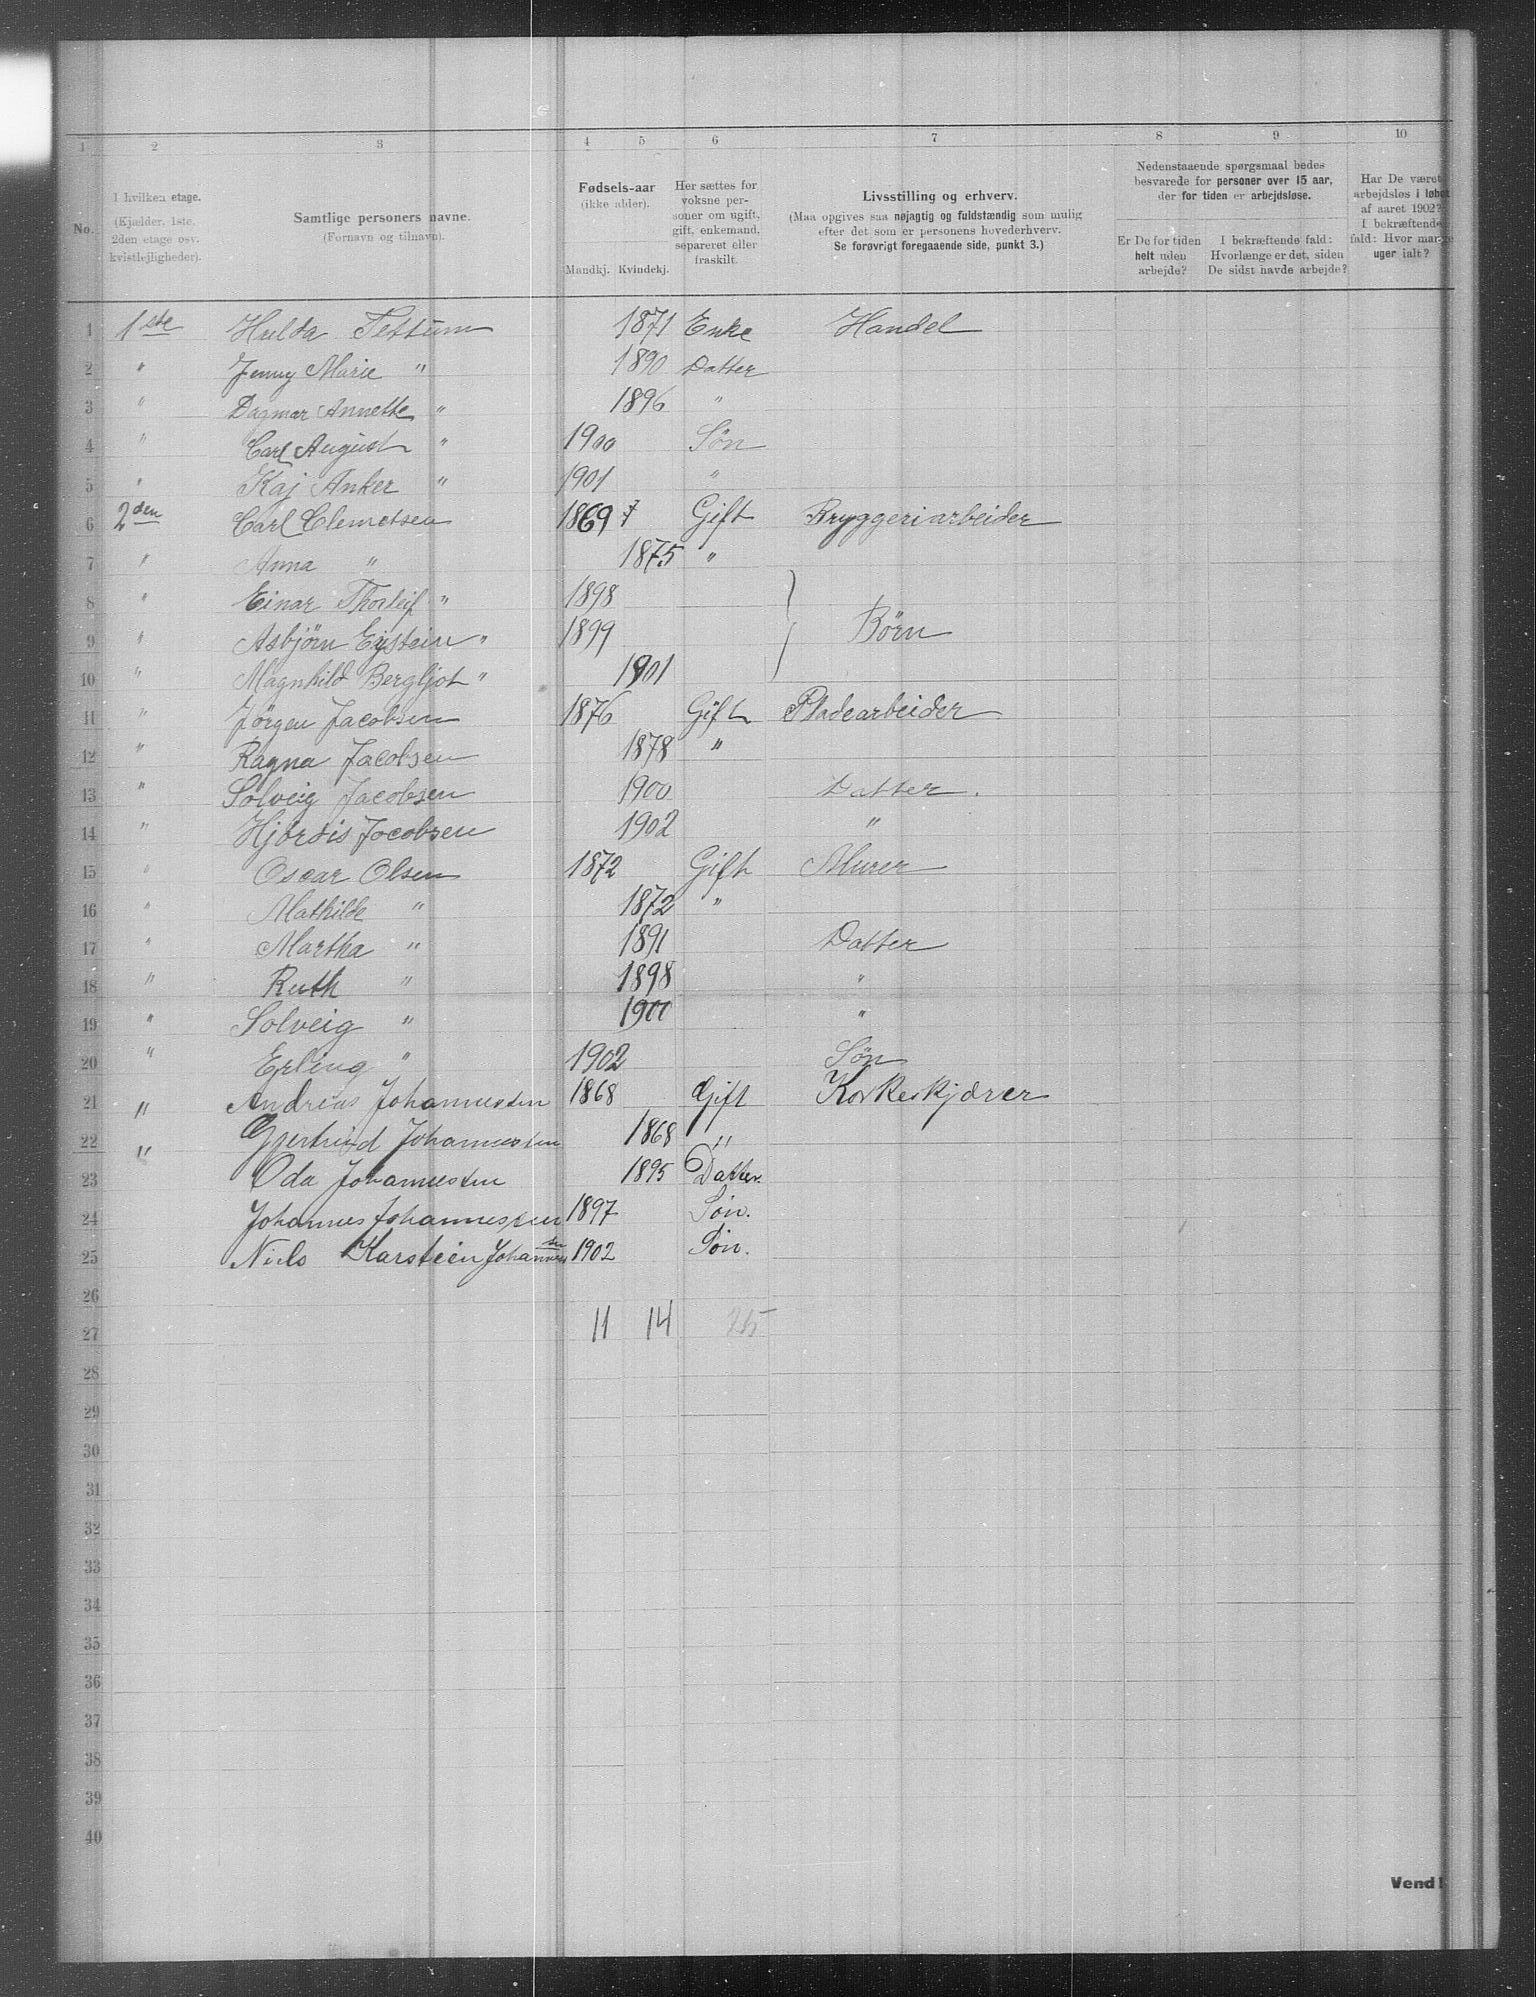 1 2 3 4 5 6 7 8 9 10
No.
I hvilken etage.
(Kjælder, 1ste, 2den etage osv. kvistlejligheder).
Samtlige personers navne.
(Fornavn og tilnavn).
Fødsels-aar
(ikke alder).
Mandkj. Kvindekj.
Her sættes for voksne personer om ugift, gift, enkemand, separeret eller fraskilt.
Livsstilling og erhverv.
(Maa opgives saa nøjagtig og fuldstændig som mulig efter det som er personens hovederhverv.
Se forøvrigt foregaaende side, punkt 3.)
Nedenstaaende spørgsmaal bedes besvarede for personer over 15 aar, der for tiden er arbejdsløse.
Er De for tiden helt uden arbejde?
I bekræftende fald: Hvorlænge er det, siden De sidst havde arbejde?
Har De været arbejdsløs i løbet af aaret 1902? I bekræftende fald: Hvor mange uger ialt?
1 1ste Hulda Tettum 1871 Enke Handel
2 " Jenny Marie " 1890 Datter
3 " Dagmar Annette " 1896 "
4 " Carl August " 1900 Søn
5 " Kaj Anker " 1901 "
6 2den Carl Clemetsen 1869 Gift Bryggeriarbeider
7 " Anna " 1875 "
8 " Einar Thorleif " 1898
9 " Asbjørn Eystein " 1899 Børn
10 " Magnhild Bergljot " 1901
11 " Jørgen Jacobsen 1876 Gift Pladearbeider
12 " Ragna Jacobsen 1878 "
13 " Solveig Jacobsen 1900 Datter.
14 " Hjørdis Jocobsen 1902 "
15 " Oscar Olsen 1872 Gift Murer
16 " Mathilde " 1872 "
17 " Martha " 1891 Datter
18 " Ruth " 1898 "
19 " Solveig " 1900 "
20 " Erling " 1902 Søn
21 " Andreas Johannesen 1868 Gift Korkeskjærer
22 " Gjertrud Johannessen 1868 "
23 Oda Johannesen 1895 Datter.
24 Johannes Johannessen 1897 Søn.
25 Niels Karsteen Johannessen 1902 Søn.
26
27 11 14 25
28
29
30
31
32
33
34
35
36
37
38
39
40
Vend!